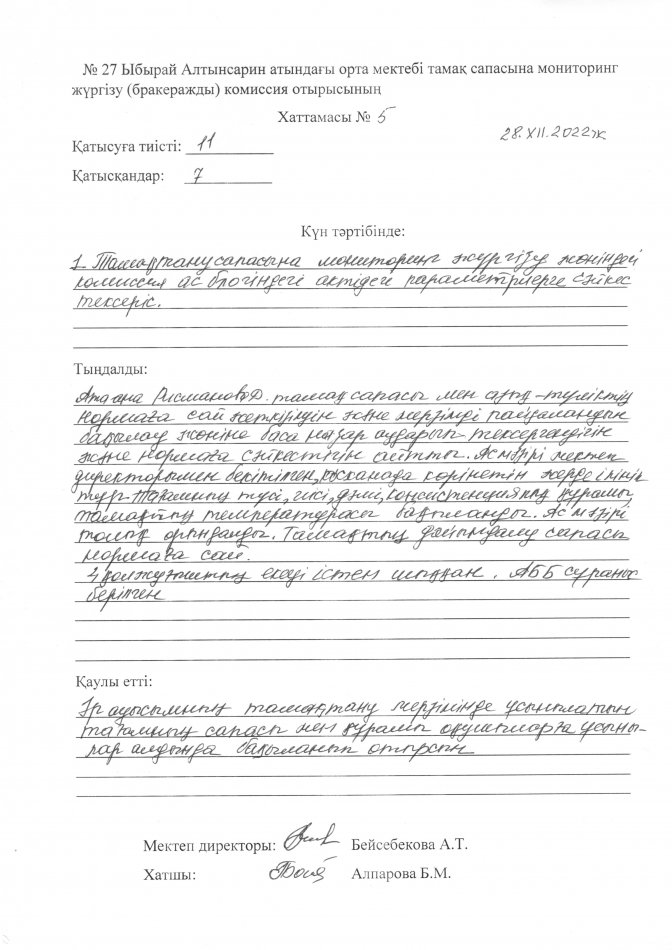 № 27 Ыбырай Алтынсарин атындағы орта мектебі тамақ сапасына мониторинг
жүргізу (бракеражды) комиссия отырысының
Хаттамасы № 5
28.XII.2022ж
Қатысуға тиісті: 11
Қатысқандар: 7
Күн тәртібінде:
1. Тамақтану сапасына мониторинг жүргізу жөніндегі
комиссия ас блогіндегі актідегі параметрлерге сәйкес
тексеріс.
Тыңдалды:
Ата ана Рисманова Д. тамақ сапасы мен азық-түліктің
нормаға сай жеткізілуін және мерзімді пайдалануын
бақылау жөніне баса назар аударып тексергендігін
және нормаға сәйкестігін айтты. Ас мәзірі мектеп
директорымен бекітілген, асханада көрінетін жерде ілініп
тұр. Тағамның түсі, иісі, дәмі, консистенциялық құрамы,
тамақтың температурасы бақыланды. Ас мәзірі
толық орындалды. Тамақтың дайындалу сапасы
нормаға сай.
4 қолжуғыштың екеуі істен шыққан. АББ сұраныс
берілген
Қаулы етті:
Әр ауысымның тамақтану мерзімінде ұсынылатын
тағамның сапасы мен құрамы оқушыларға ұсыны-
лар алдында бақыланып отырсын
Мектеп директоры: Бейсебекова А.Т.
Хатшы: Алпарова Б.М.